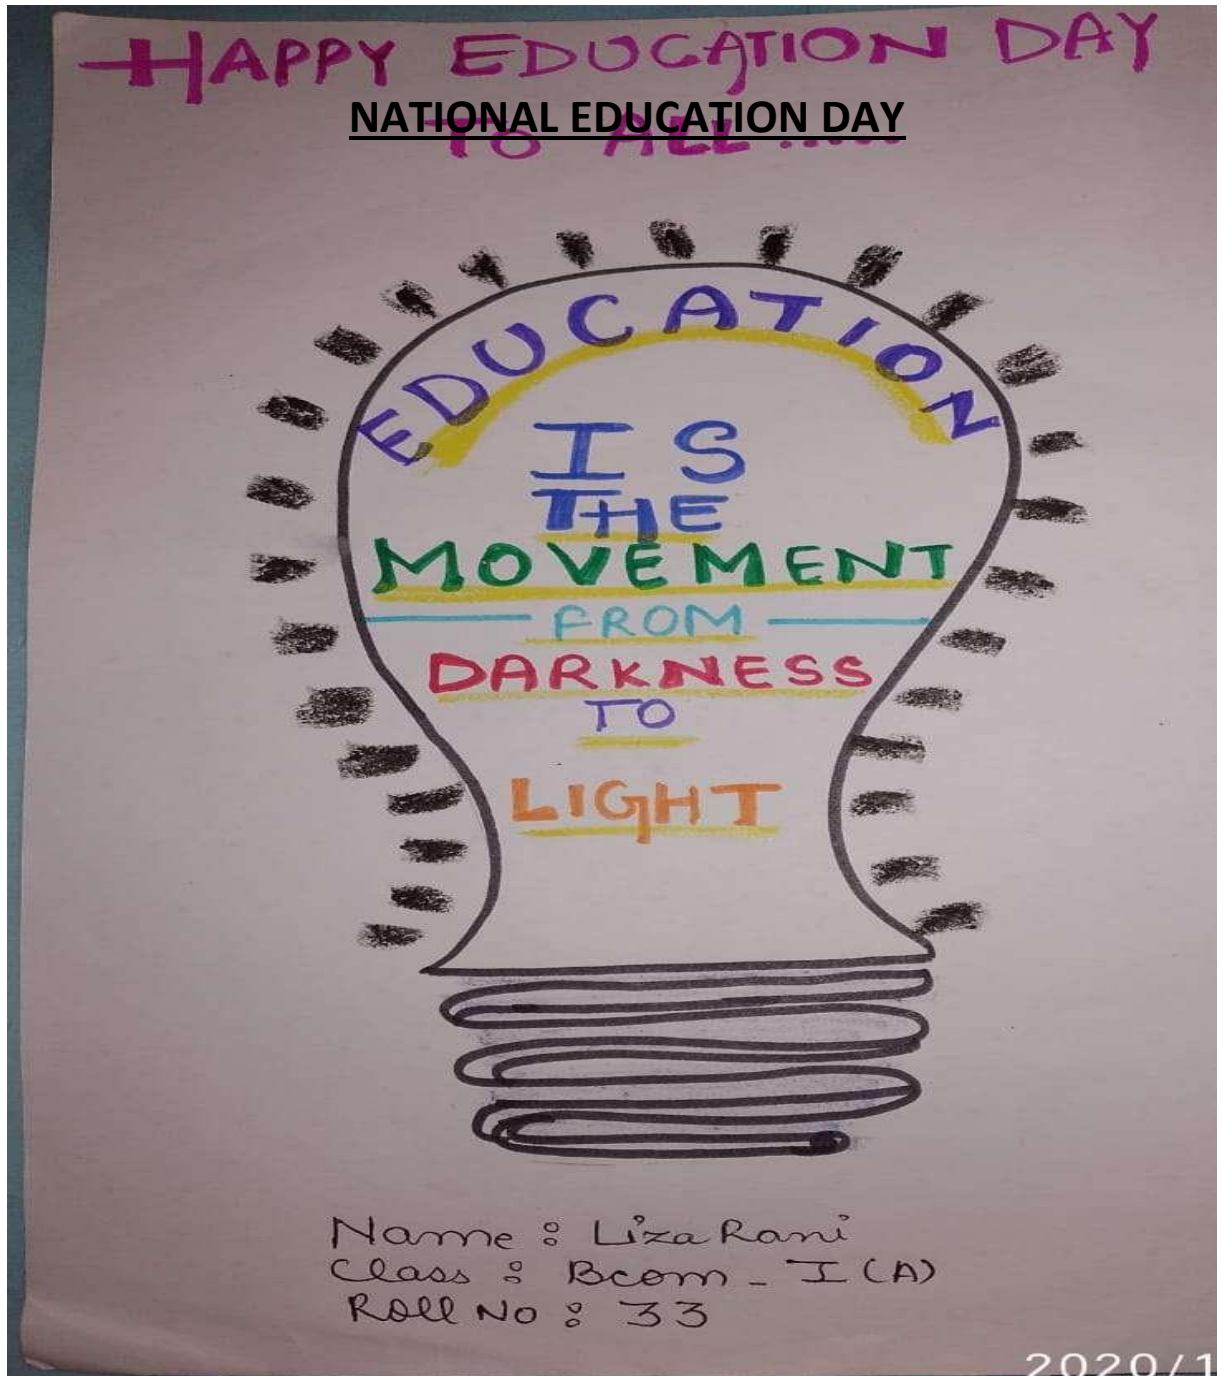 HAPPY EDUCATION DAY
NATIONAL EDUCATION DAY
TO ALL.....
EDUCATION
IS
THE
MOVEMENT
FROM
DARKNESS
TO
LIGHT
Name : Liza Rani
Class : Bcom - I (A)
Roll No : 33
2020/1